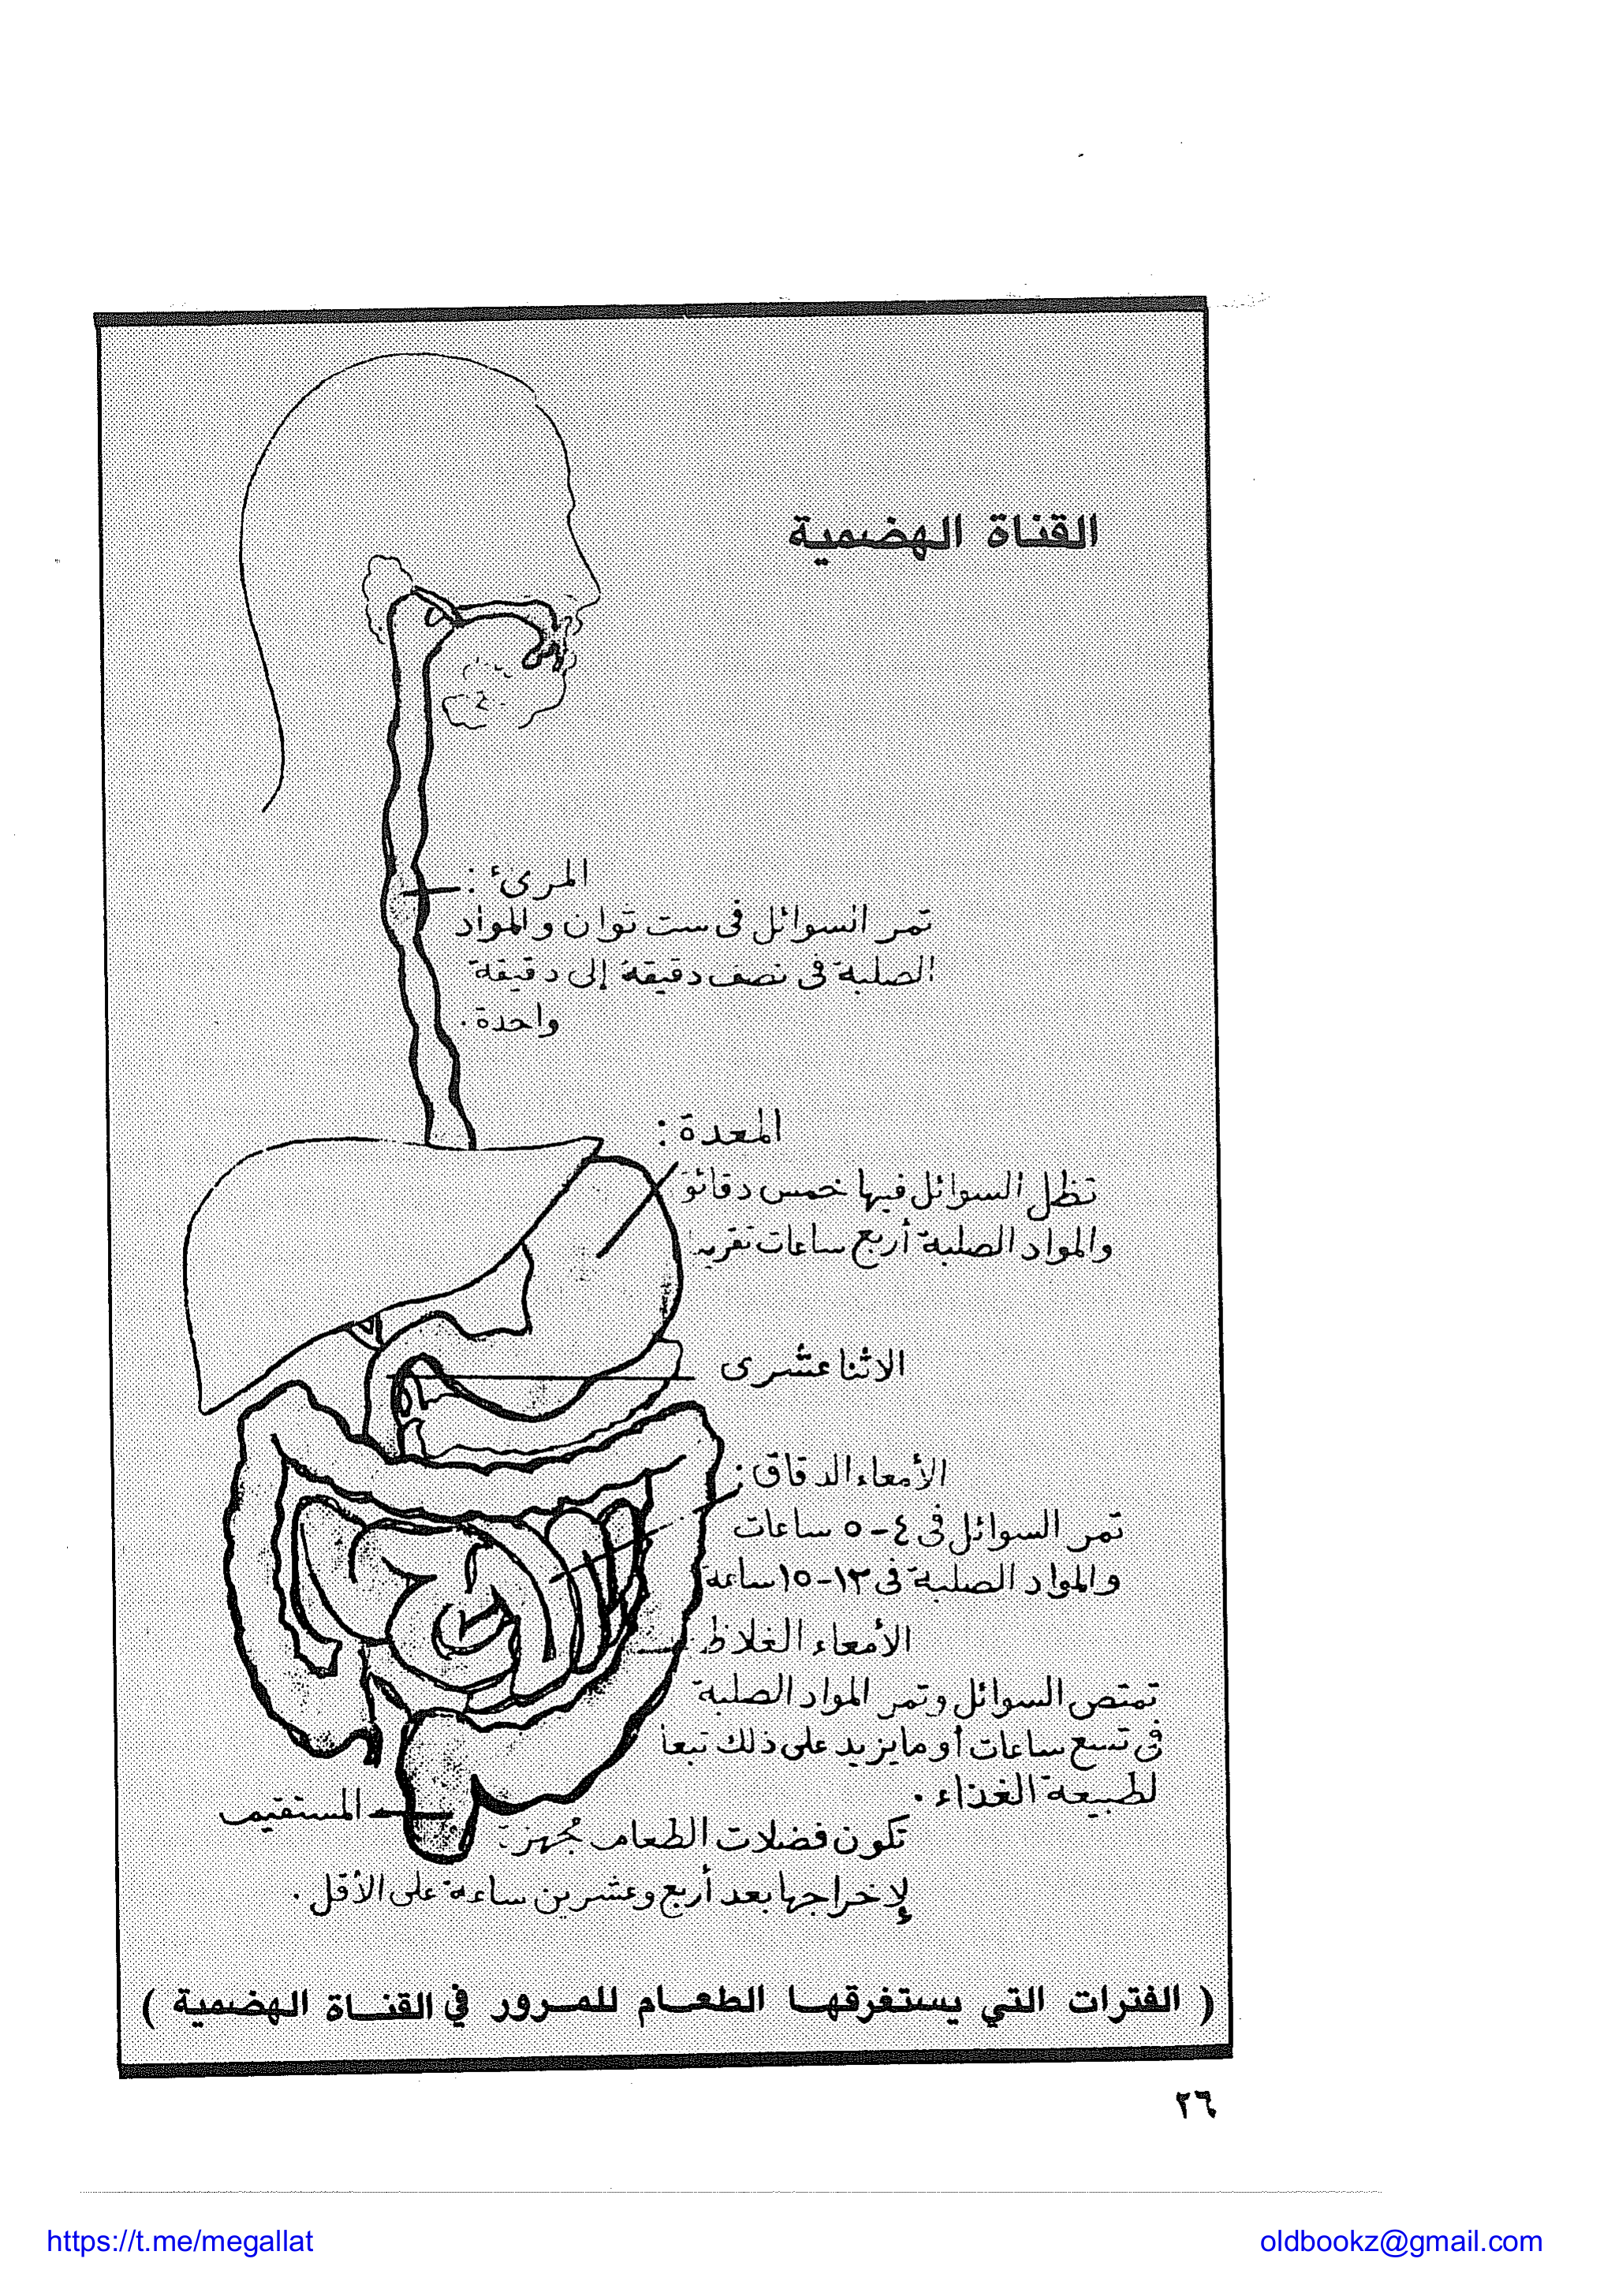 القناة الهضمية
المرئ :
تمر السوائل فى ست ثوان والمواد
الصلبة فى نصف دقيقة إلى دقيقة
واحدة .
المعدة :
تظل السوائل فيها خمس دقائق
والمواد الصلبة أربع ساعات تقريبا
الاثنا عشرى
الأمعاء الدقاق :
تمر السوائل فى ٤-٥ ساعات
والمواد الصلبة فى ١٣-١٥ ساعة
الأمعاء الغلاظ
تمتص السوائل وتمر المواد الصلبة
فى تسع ساعات أو ما يزيد على ذلك تبعا
لطبيعة الغذاء .
المستقيم
تكون فضلات الطعام مجهزة
لإخراجها بعد أربع وعشرين ساعة على الأقل .
( الفترات التي يستغرقها الطعام للمرور في القناة الهضمية )
٢٦
https://t.me/megallat
oldbookz@gmail.com